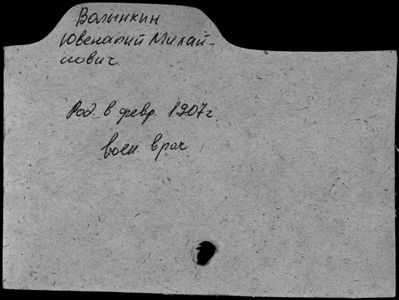 Волынкин
Ювеналий Михай-
лович
Род. в февр. 1907 г.
воен врач